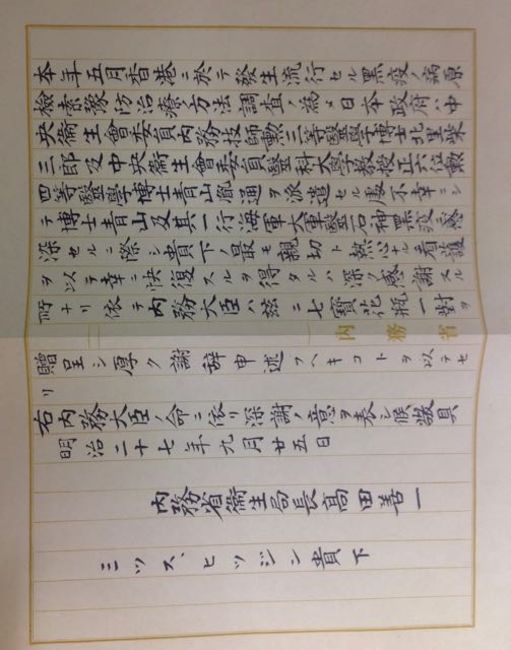 本年五月香港ニ於テ發生流行セル黒疫ノ病原
檢索豫防治療ノ方法調査ノ為メ日本政府ハ中
央衞生會委員内務技師勲三等醫學博士北里柴
三郎及中央衞生會委員醫科大學教授正六位勲
四等醫學博士青山胤通ヲ派遣セル處不幸ニシ
テ博士青山及其一行海軍大軍醫石神黒疫ニ感
染セルニ際シ貴下ノ最モ親切ト熱心ナル看護
ヲ以テ幸ニ快復スルヲ得タルハ深ク感謝スル
所ナリ依テ内務大臣ハ茲ニ七寶花瓶一對ヲ
内務省
贈呈シ厚ク謝辞申述フヘキコトヲ以テセ
リ
右内務大臣ノ命ニ依リ深謝ノ意ヲ表シ候敬具
明治二十七年九月廿五日
内務省衞生局長高田善一
ミツス、ヒツジン貴下